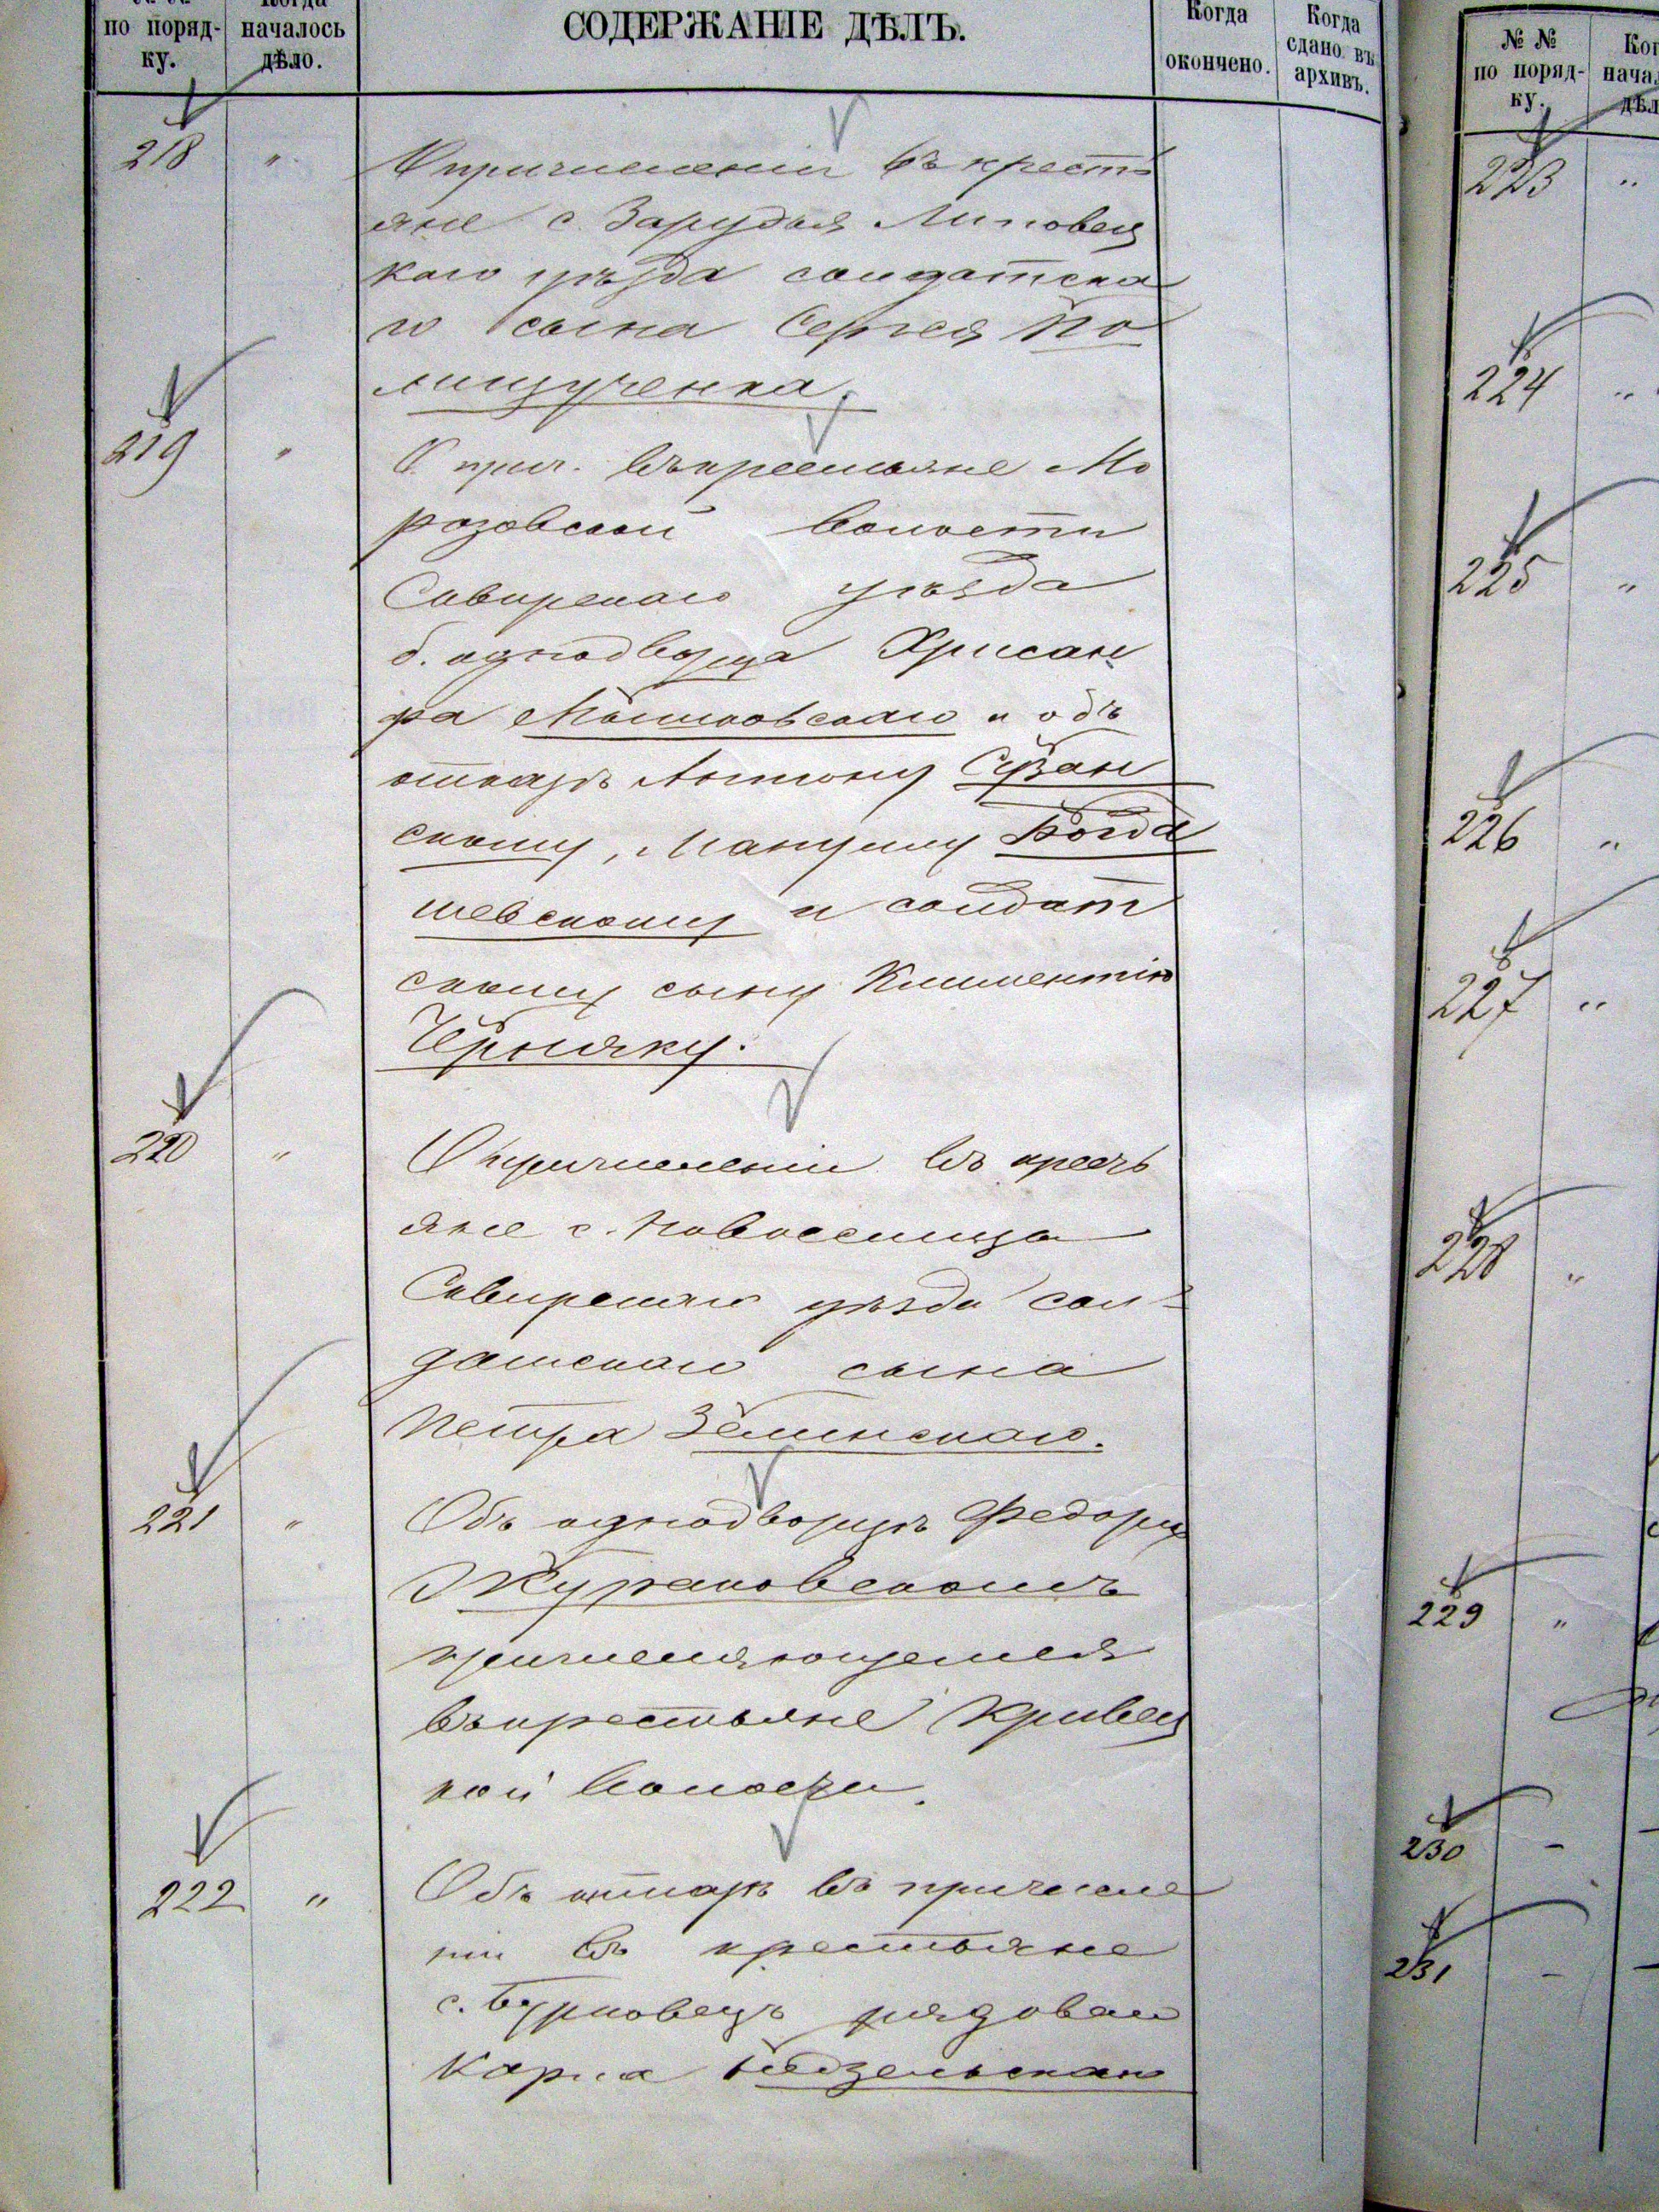 № №
по поряд-
ку.
Когда
началось
дѣло.
СОДЕРЖАНІЕ ДѢЛЪ.
Когда
окончено.
Когда
сдано въ
архивъ.
218 "
О причисленіи въ крестъ
яне с. Зарудья Липовец
каго уѣзда солдатска
го сына Сергея По
лищученка.
219 "
О прич. въ крестьяне Мо
розовской волости
Сквирскаго уѣзда
б. однодворца Хрисан
фа Машковскаго и объ
отказѣ Антону
скому,
шевскому и солдат
скому сыну Климентію
Черняку.
220 "
О причисленіи въ кресть
яне с. Новоселица
Сквирскаго уѣзда сол-
датскаго сына
Петра Зелинскаго.
221 "
Объ однодворцѣ Федорѣ
Жураковскомъ
причисляющемся
въ крестьяне Кривец
кой волости.
222 "
Объ отказѣ въ причисле
ніи въ крестьяне
с. Бурковецъ рядоваго
Карла Недзельскаго
№ №
по поряд-
ку.
223 "
224 "
225 "
226 "
227 "
228 "
229 "
230 -
231 -